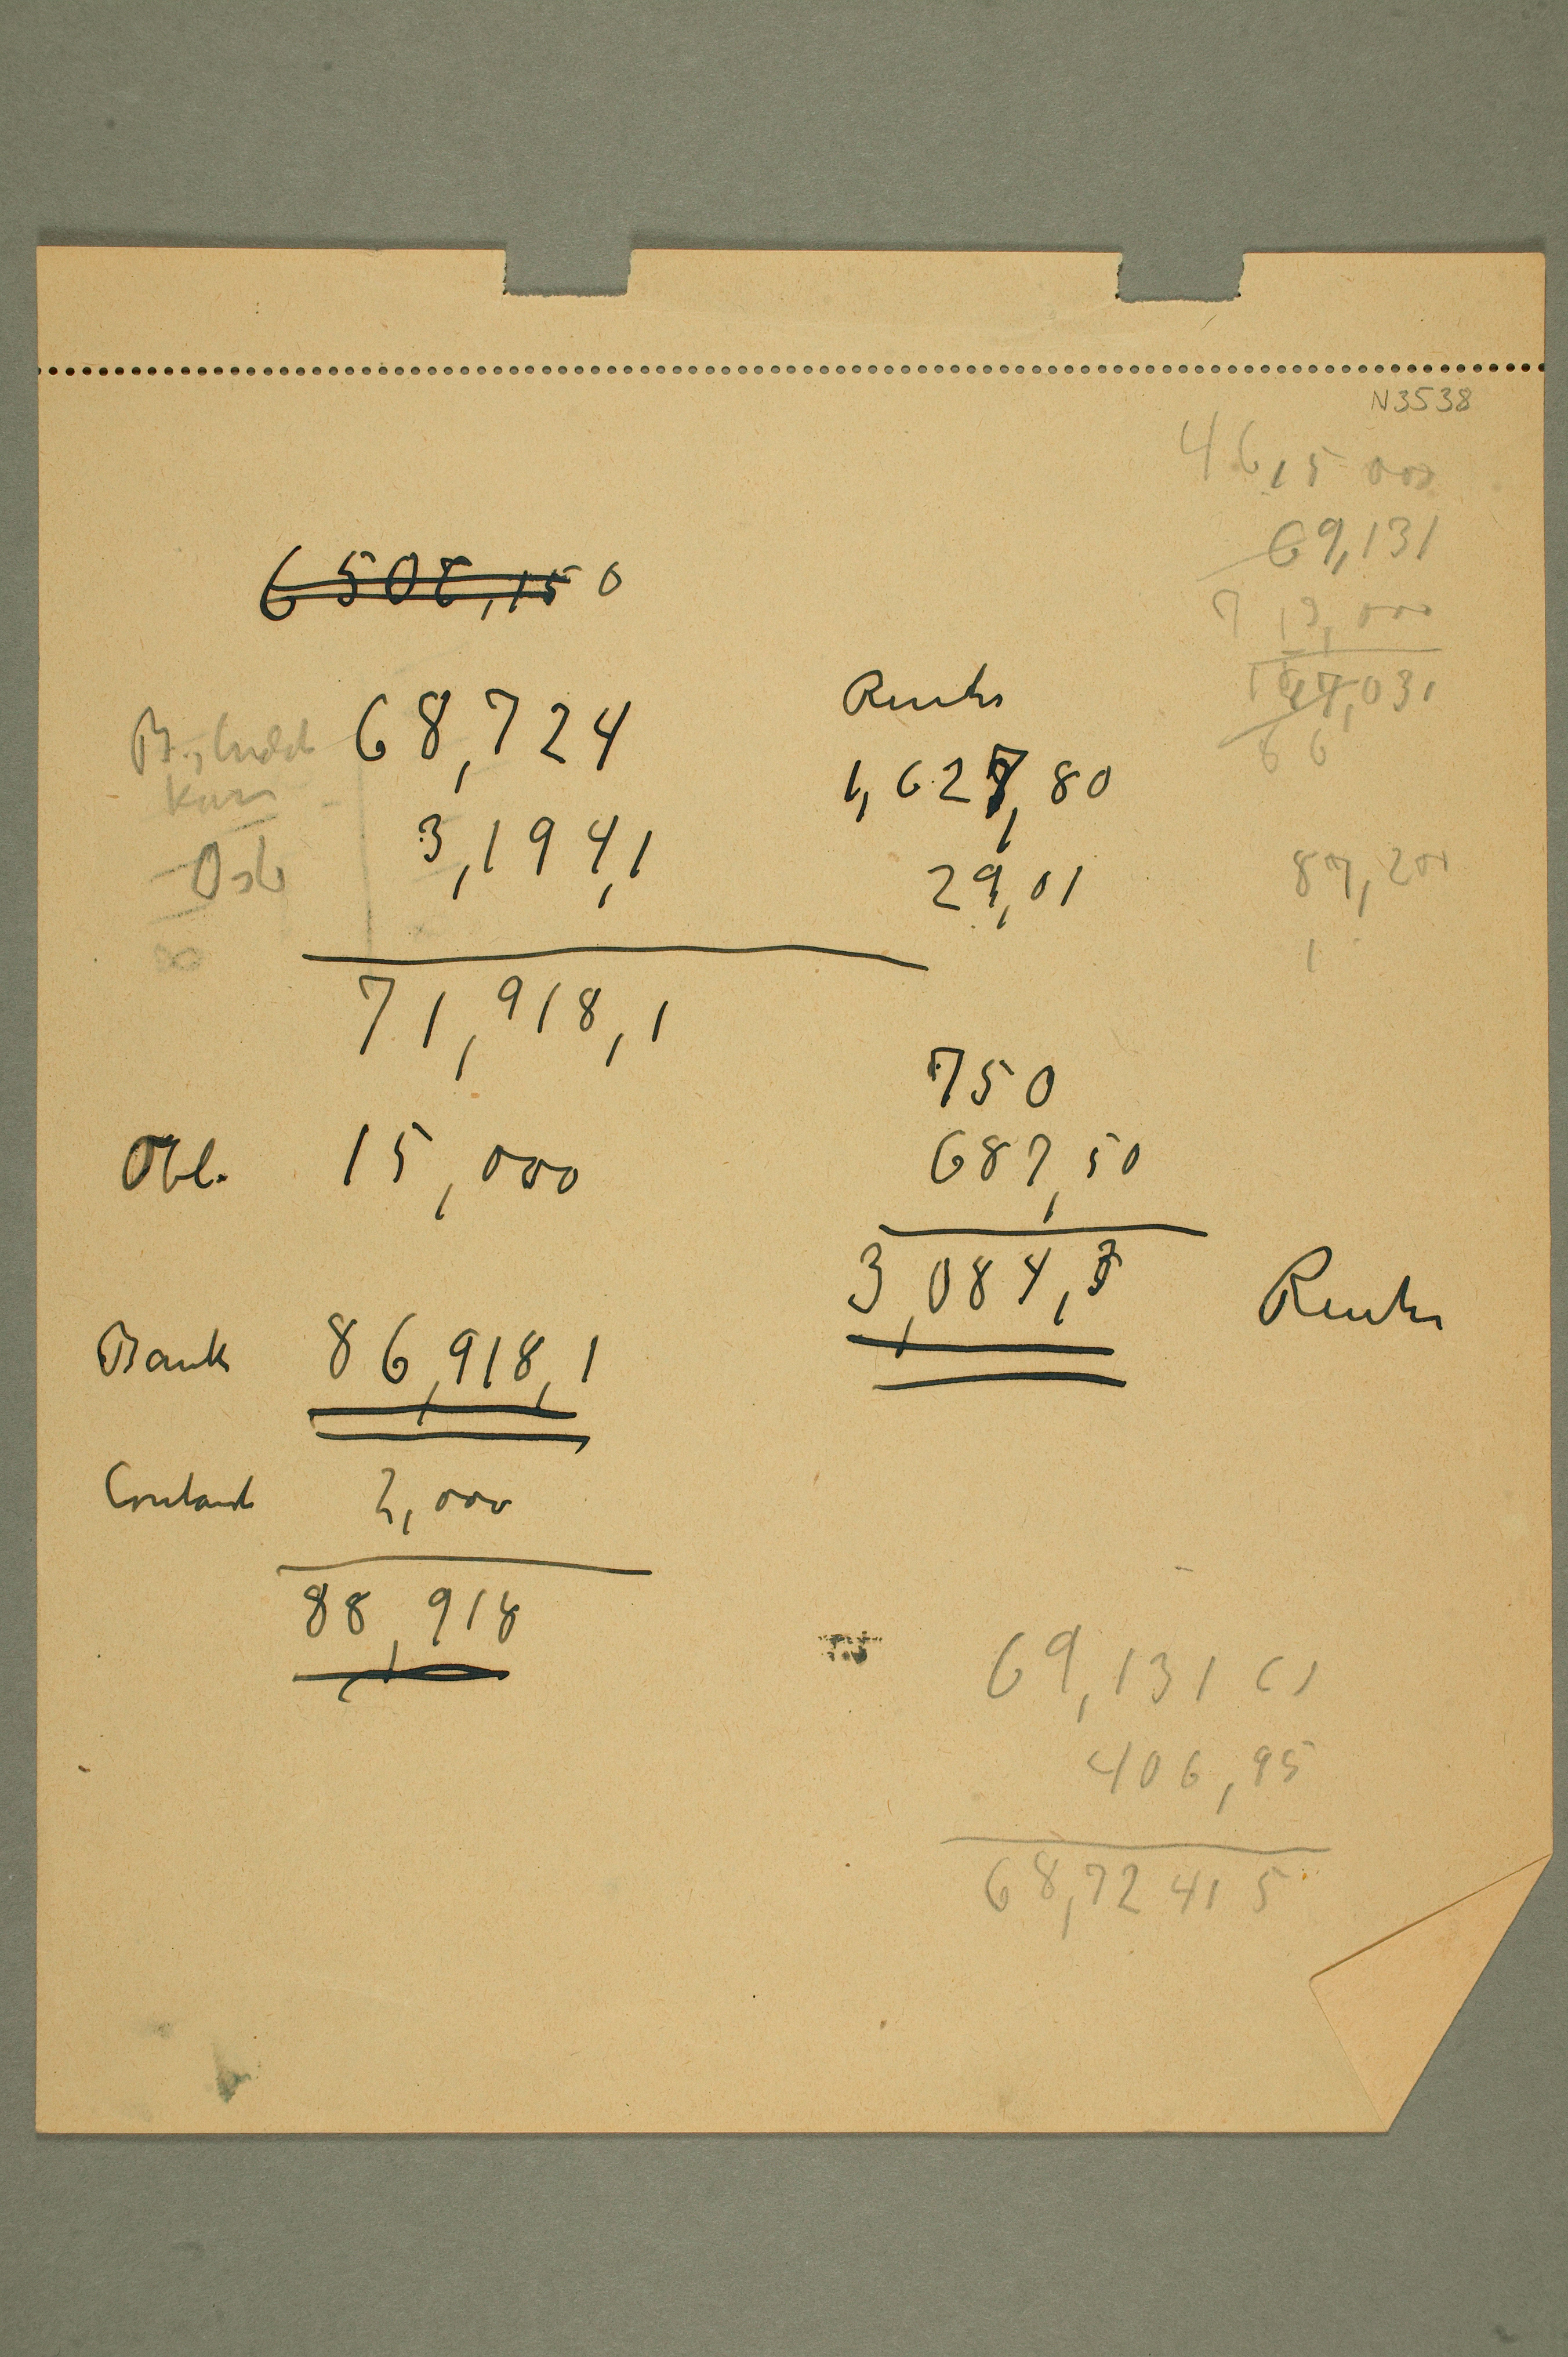 N3538
46,5 000
69,131
713,000
6508,150
Renter
68,724
1,627,80
3,194,1
29,01
87,200
1
71,918,1
750
Obl. 15,000
687,50
3,084,3 Renter
Bank 86,918,1
Contant 2,000
88,918
69,131 61
406,95
68,724 5